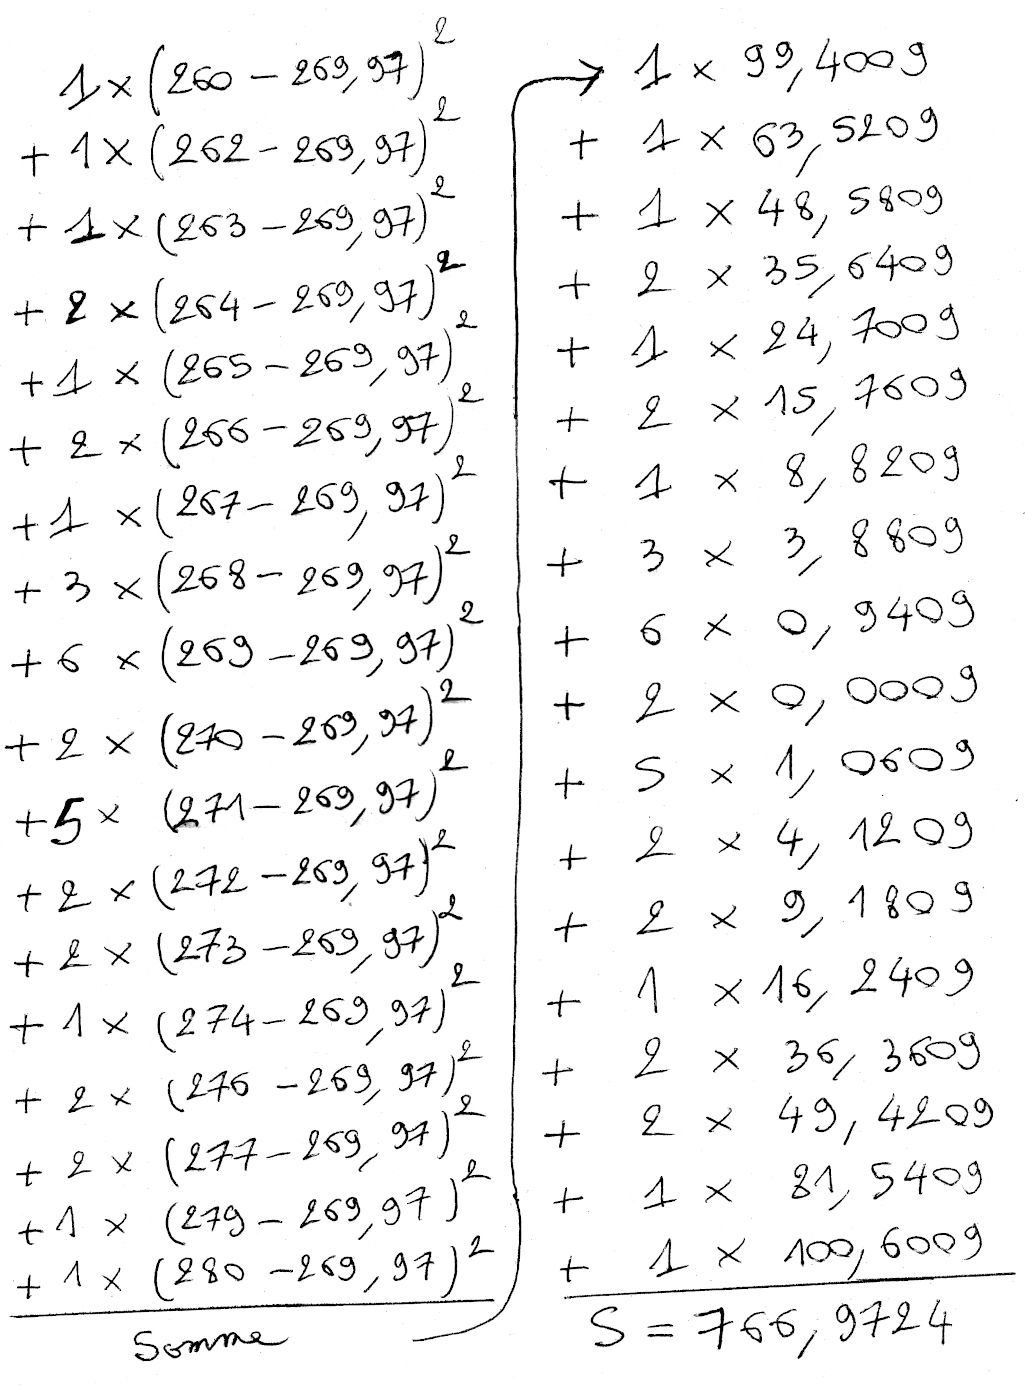 1 × (260 – 269,97)²
+ 1 × (262 – 269,97)²
+ 1 × (263 – 269,97)²
+ 2 × (264 – 269,97)²
+ 1 × (265 – 269,97)²
+ 2 × (266 – 269,97)²
+ 1 × (267 – 269,97)²
+ 3 × (268 – 269,97)²
+ 6 × (269 – 269,97)²
+ 2 × (270 – 269,97)²
+ 5 × (271 – 269,97)²
+ 2 × (272 – 269,97)²
+ 2 × (273 – 269,97)²
+ 1 × (274 – 269,97)²
+ 2 × (276 – 269,97)²
+ 2 × (277 – 269,97)²
+ 1 × (279 – 269,97)²
+ 1 × (280 – 269,97)²
Somme
1 × 99,4009
+ 1 × 63,5209
+ 1 × 48,5809
+ 2 × 35,6409
+ 1 × 24,7009
+ 2 × 15,7609
+ 1 × 8,8209
+ 3 × 3,8809
+ 6 × 0,9409
+ 2 × 0,0009
+ 5 × 1,0609
+ 2 × 4,1209
+ 2 × 9,1809
+ 1 × 16,2409
+ 2 × 36,3609
+ 2 × 49,4209
+ 1 × 81,5409
+ 1 × 100,6009
S = 766,9724